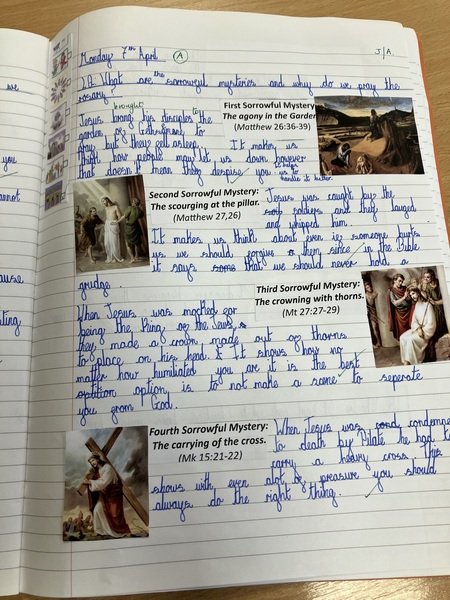 we
you
cannot
cause
ating
Monday 7th April
A
J/A.
L.O. What are the sorrowful mysteries and why do we pray the
rosary?
brought
Jesus bring his disciples to to
garden of Gethsemane to
pray but they fell asleep. It makes us
think how people may let us down however
that doesn't mean they despise you. It helps us to handle it better.
First Sorrowful Mystery
The agony in the Garden
(Matthew 26:36-39)
Second Sorrowful Mystery:
The scourging at the pillar.
(Matthew 27,26)
Jesus was caught by the
soldiers and they laughed
and whipped him.
It makes us think about even if someone hurts
us we should forgive them since in the Bible
it says some that we should never hold a
grudge.
Third Sorrowful Mystery:
The crowning with thorns.
(Mt 27:27-29)
When Jesus was mocked for
being the King of the Jews,
they made a crown made out of thorns
to place on his head. It shows how no
matter how humiliated you are it is the best
option is to not make a scene to seperate
you from God.
Fourth Sorrowful Mystery:
The carrying of the cross.
(Mk 15:21-22)
When Jesus was cond condemned
to death by Pilate he had to
carry a heavy cross. This
shows with even alot of preasure you should
always do the right thing.